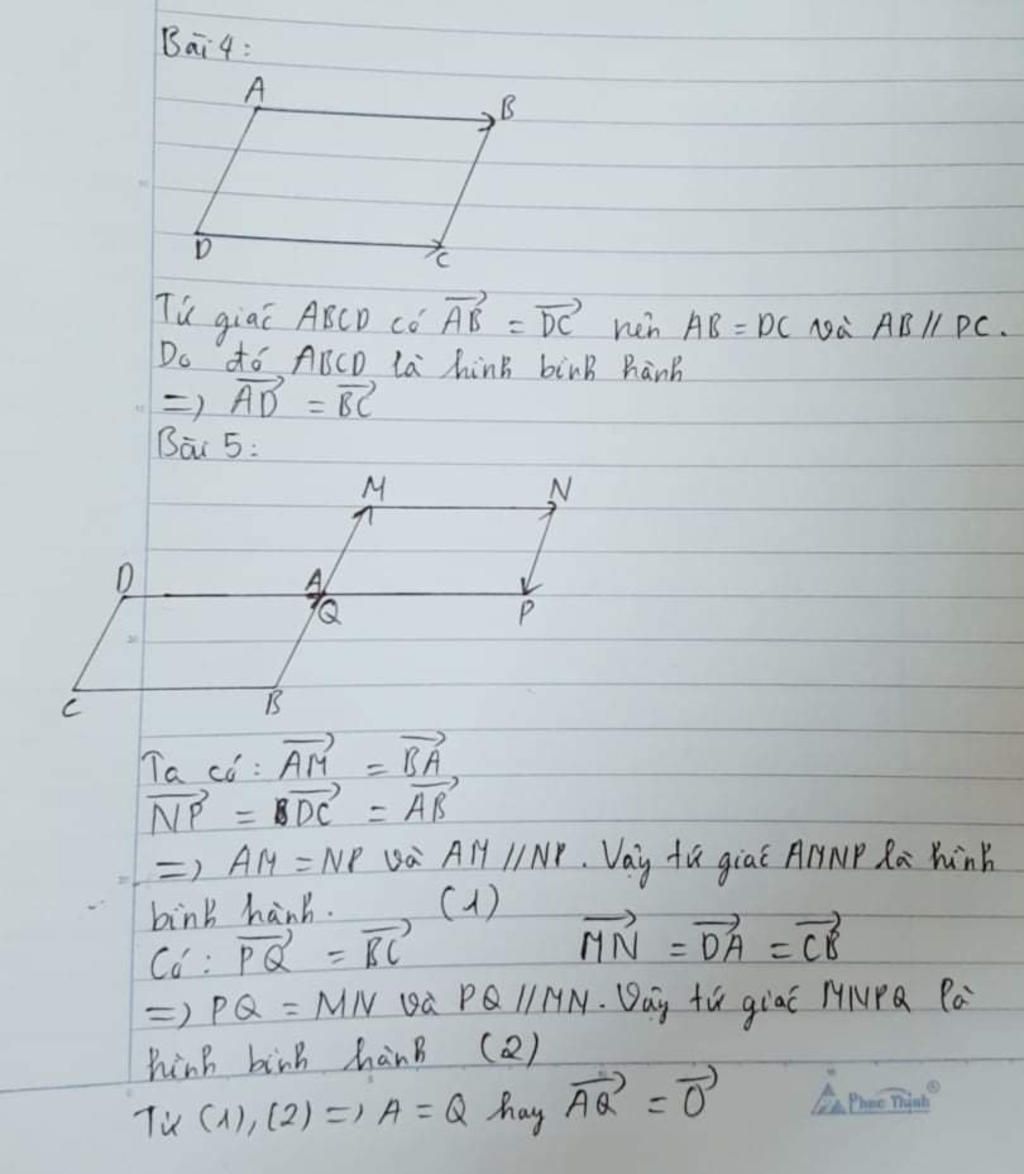 Bài 4:
A B
D C
Tứ giác ABCD có $\overrightarrow{AB}$ = $\overrightarrow{DC}$ nên AB = DC và AB // DC.
Do đó ABCD là hình bình hành
=> $\overrightarrow{AD}$ = $\overrightarrow{BC}$
Bài 5:
M N
D A
Q P
C B
Ta có: $\overrightarrow{AM}$ = $\overrightarrow{BA}$
$\overrightarrow{NP}$ = $\overrightarrow{DC}$ = $\overrightarrow{AB}$
=> AM = NP và AM // NP. Vậy tứ giác AMNP là hình
bình hành. (1)
Có: $\overrightarrow{PQ}$ = $\overrightarrow{BC}$ $\overrightarrow{MN}$ = $\overrightarrow{DA}$ = $\overrightarrow{CB}$
=> PQ = MN và PQ // MN. Vậy tứ giác MNPQ là
hình bình hành (2)
Từ (1), (2) => A = Q hay $\overrightarrow{AQ}$ = $\overrightarrow{0}$
Phuc Thinh®